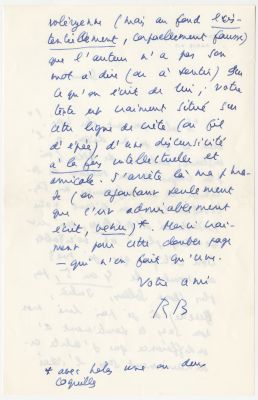 (mais au fond
, corporellement fausse)
que l'auteur n'a pas son
mot à dire (ou à sentir) sur
ce qu'on écrit de lui ; votre
texte est vraiment situé sur
cette ligne de crête (au fil
d'épée) d'une discursivité
à la fois intellectuelle et
amicale. J'arrête là ma phrase
(en ajoutant seulement
que c'est admirablement
écrit, venu)*. Merci vrai-
ment pour cette double page
– qui n'en fait qu'une.
Votre ami
RB
* avec hélas une ou deux
coquilles